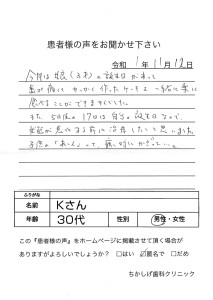 患者様の声をお聞かせ下さい
令和 1年 11月 12日
今年は娘(3才)の誕生日があって
歯が痛く せっかく作ったケーキも一緒に楽に
食べることができませんでした。
また 5日後の17日は自分の誕生日なので、
全部が悪化する前に治療したいと思いました。
って、痛い時にかぎって…。
ふりがな
名前 Kさん
年齢 30代 性別 男性・女性
この『患者様の声』をホームページに掲載させて頂く場合が
ありますがよろしいでしょうか? □はい ☑匿名で □だめ
ちかしげ歯科クリニック